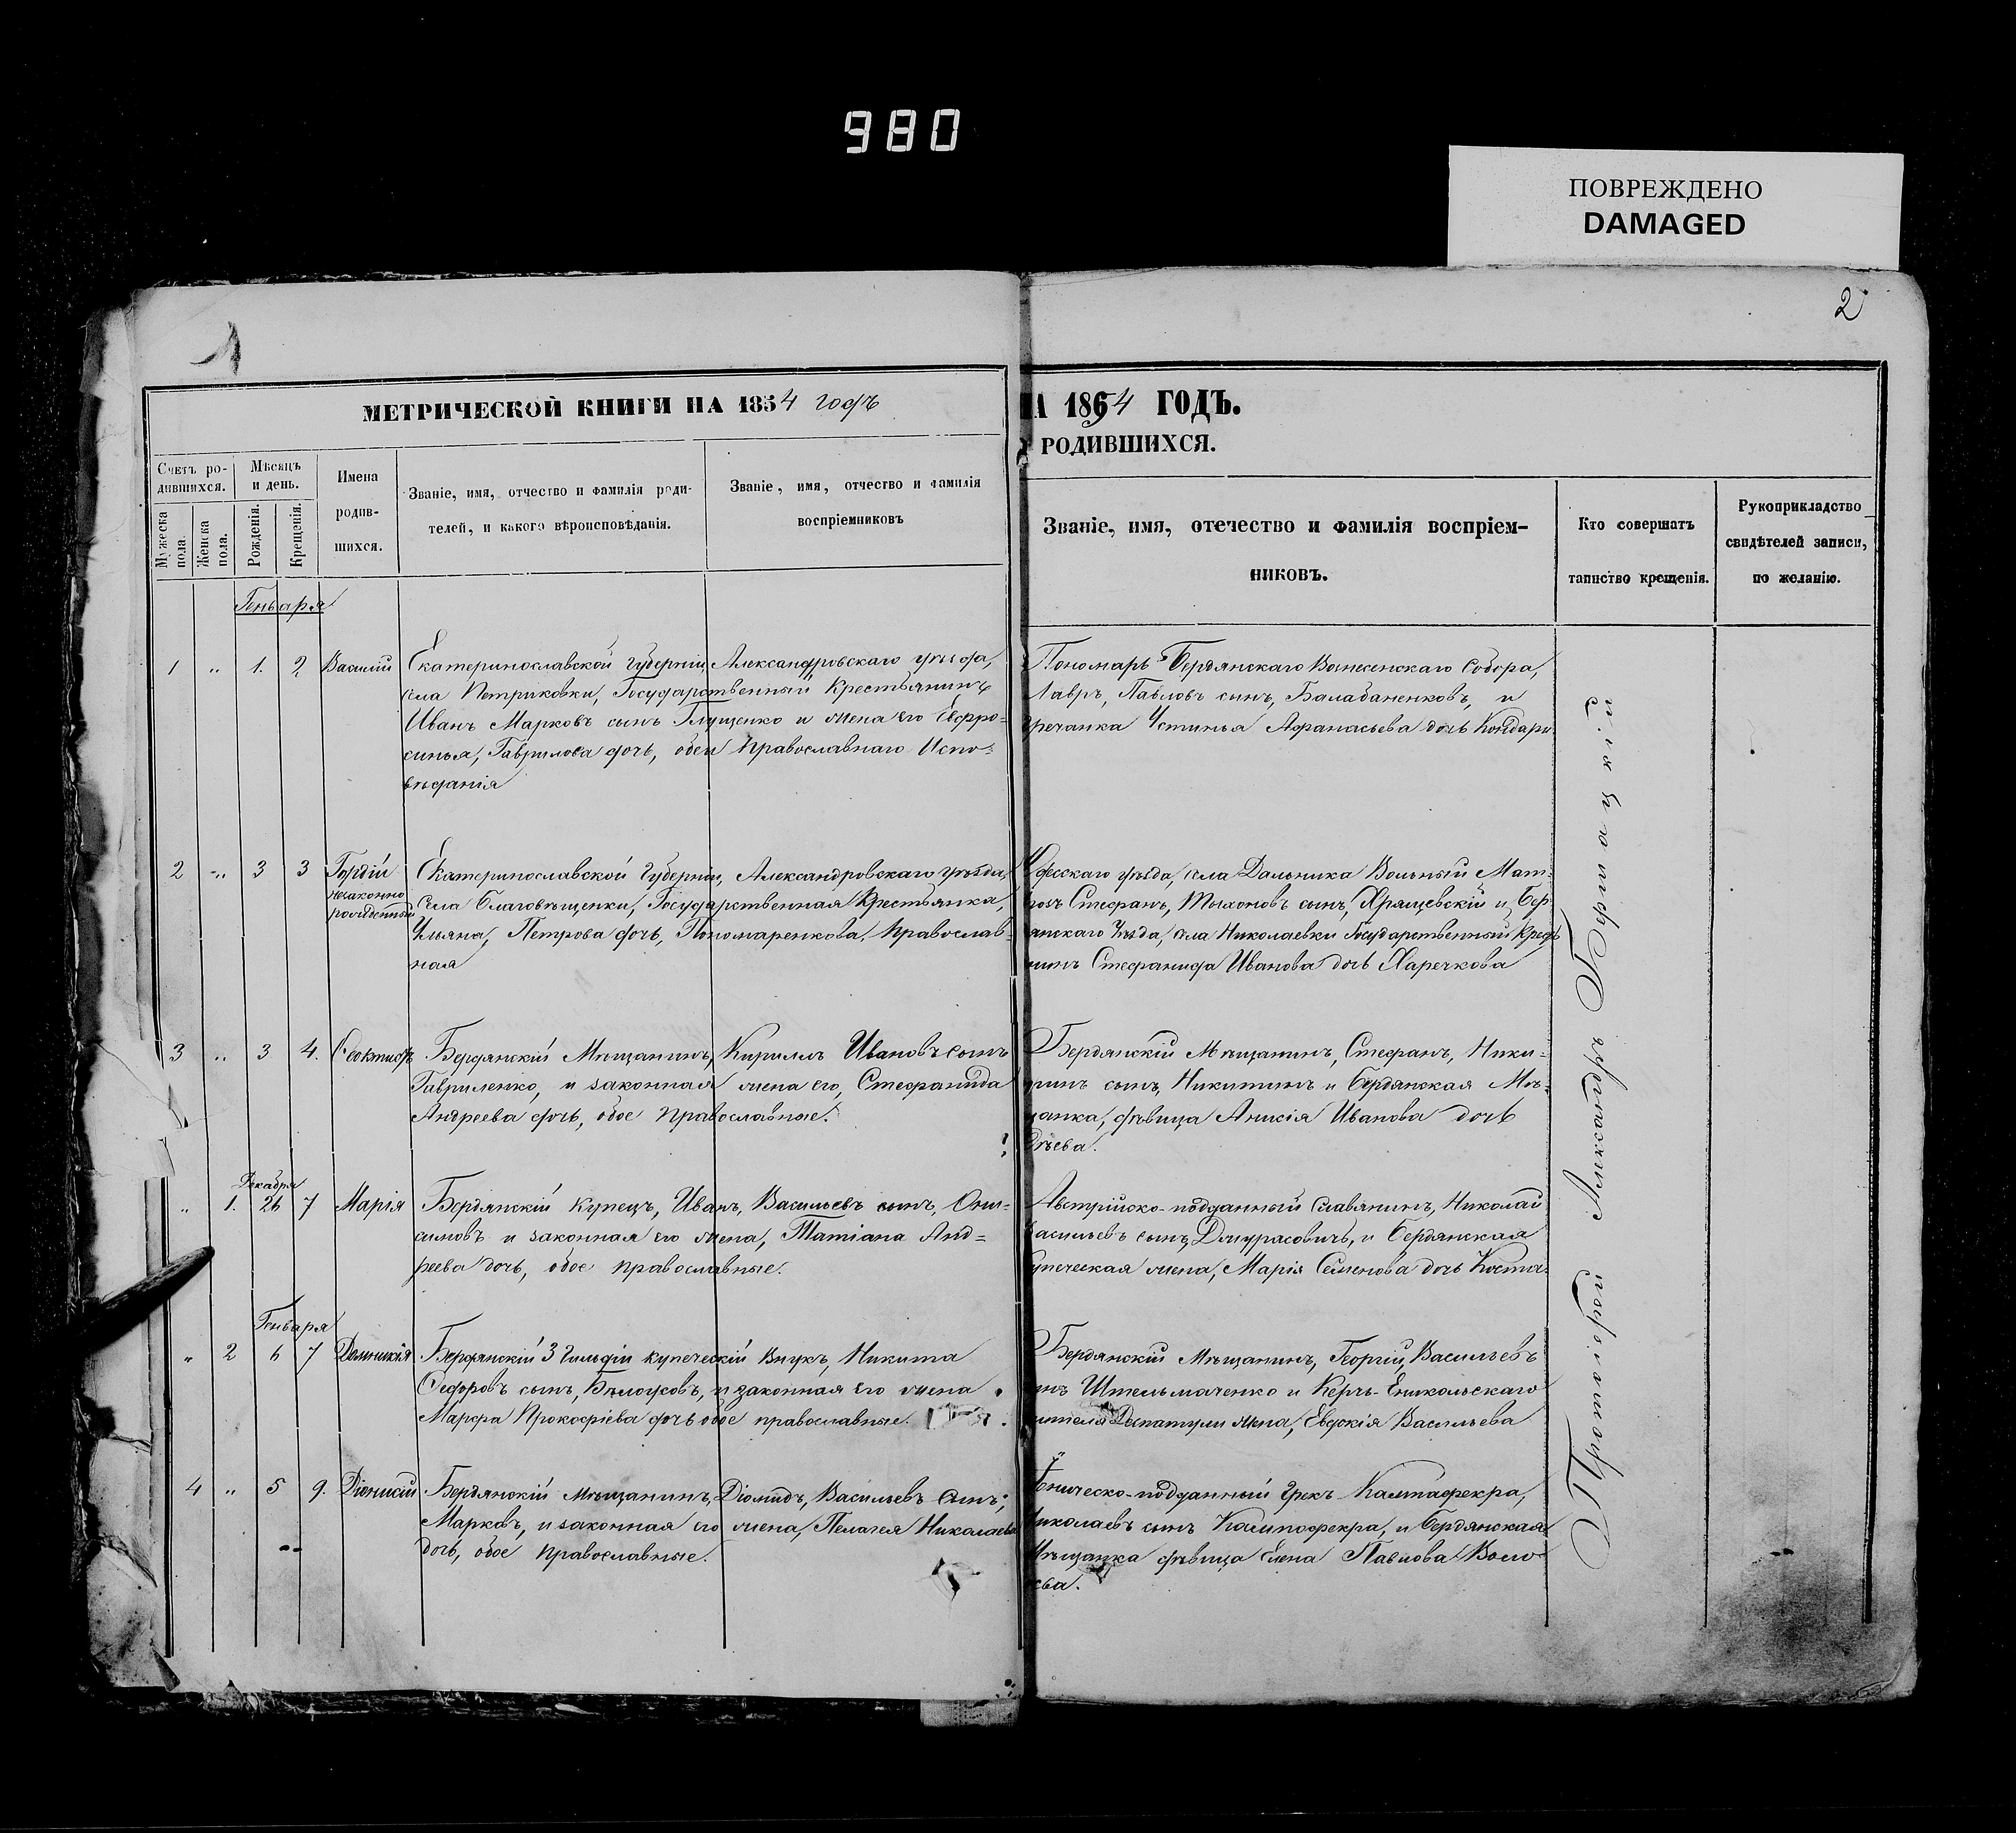 980
ПОВРЕЖДЕНО
DAMAGED
1
2
МЕТРИЧЕСКОЙ КНИГИ НА 1854 годъ
Счетъ ро-
дившихся.
Мѣсяцъ
и день.
Мужеска
пола.
Женска
пола.
Рожденія.
Крещенія.
Имена
родив-
шихся.
Званіе, имя, отчество и фамилія роди-
телей, и какого вѣроисповѣданія.
Званіе, имя, отчество и фамилія
воспріемниковъ
Генваря
1 " 1. 2 Василий Екатеринославской Губерніи, Александровскаго уѣзда,
села Петриковки, Государственный Крестьянинъ
Иванъ Марковъ сынъ Глущенко и жена его Евфро-
синья, Гаврилова дочь, обеи православнаго Испо-
вѣданія
2 " 3 3 Гордій
незаконно
рожденный
Екатеринославской Губерніи, Александровскаго уѣзда,
Села Благовѣщенки, Государственная Крестьянка,
Ульяна, Петрова дочь, Пономаренкова, Православ-
ная
3 " 3 4. Феоктистъ Бердянскій Мѣщанинъ, Кириллъ Ивановъ сынъ
Гавриленко, и законная жена его, Стефанида
Андреева дочь, обое православные.
Декабря
" 1. 26 7 Марія Бердянскій Купецъ, Иванъ, Васильевъ сынъ, Они-
симовъ и законная его жена, Татіана Анд=
реева дочь, обое православные.
Генваря
" 2 6 7 Домникія Бердянскій 3 Гильдіи купеческій Внукъ, Никита
Федоровъ сынъ, и законная его жена
Марфа Прокофіева дочь обое православные.
4 " 5 9. Діонисій Бердянскій мѣщанинъ, Діомидъ, Васильевъ сынъ,
Марковъ, и законная его жена, Пелагея Николаева
дочь, обое православные.
А 1854 ГОДЪ.
РОДИВШИХСЯ.
Званіе, имя, отечество и фамилія воспріем-
никовъ.
Кто совершатъ
таинство крещенія.
Рукоприкладство
свидѣтелей записи,
по желанію.
Пономарь Бердянскаго Вознесенскаго Собора,
Лавръ, Павловъ сынъ, Балабаненковъ, и
гречанка Устинья Афанасьева дочь
уѣзда, села Дальника Вольный Мат-
Стефанъ, Тыхоновъ сынъ, Хрящевскій и Бер
янскаго Уѣзда, села Николаевки Государственный
Стефанида Иванова дочь Харечкова
Бердянскій Мѣщанинъ, Стефанъ, Ники-
сынъ, Никитинъ и Бердянская Мѣ-
щанка, дѣвица Анисія Иванова дочь
Австрійско-подданный Славянинъ, Николай
Васильевъ сынъ, и Бердянская
купеческая жена, Марія Семенова дочь
Бердянскій Мѣщанинъ, Георгій, Васильевъ
Штельмаченко и Керчь-Еникольскаго
жителя жена, Евдокія Васильева
подданный Грекъ
Николаевъ сынъ и Бердянская
Мѣщанка дѣвица Елена Павлова
Протоіерей Александръ